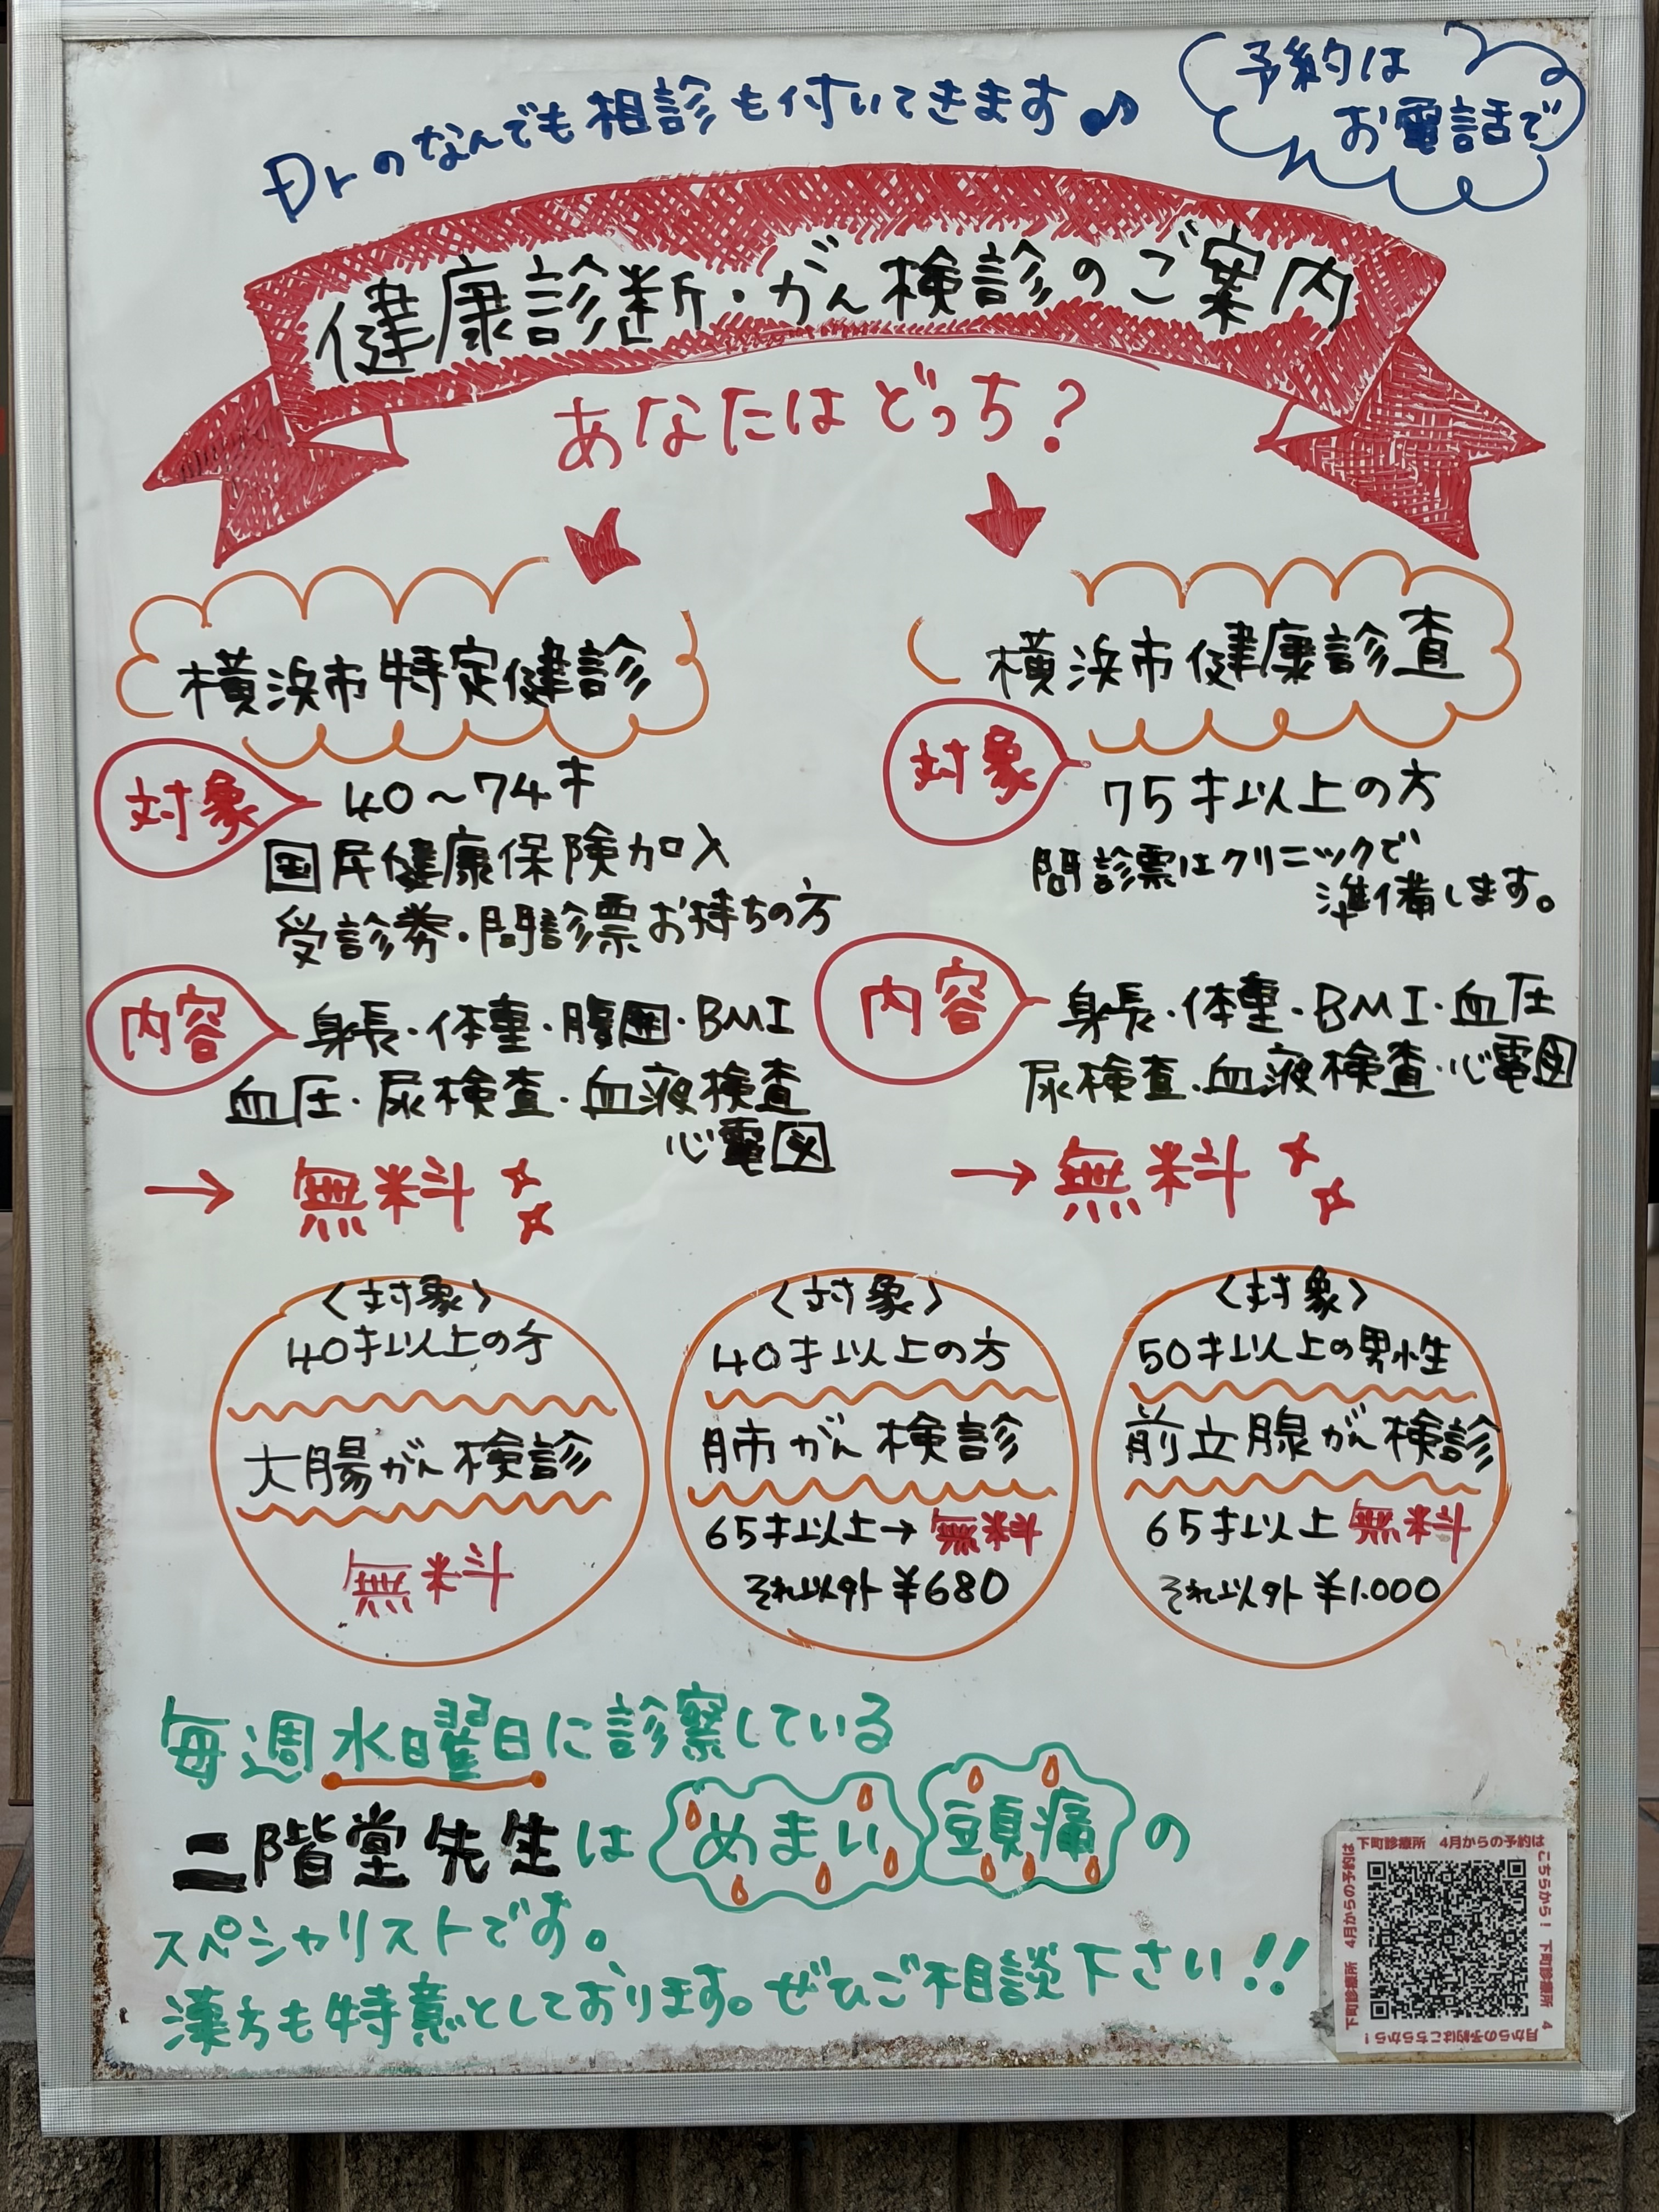 予約は
お電話で
Drのなんでも相診も付いてきます♪
健康診断・がん検診のご案内
あなたはどっち?
横浜市特定健診
対象
40～74才
国民健康保険加入
受診券・問診票お持ちの方
内容
身長・体重・腹囲・BMI
血圧・尿検査・血液検査
心電図
→ 無料
横浜市健康診査
対象
75才以上の方
問診票はクリニックで
準備します。
内容
身長・体重・BMI・血圧
尿検査・血液検査・心電図
→ 無料
〈対象〉
40才以上の方
大腸がん検診
無料
〈対象〉
40才以上の方
肺がん検診
65才以上→無料
それ以外¥680
〈対象〉
50才以上の男性
前立腺がん検診
65才以上 無料
それ以外¥1.000
毎週水曜日に診察している
二階堂先生はめまい頭痛の
スペシャリストです。
漢方も特意としております。ぜひご相談下さい!!
下町診療所 4月からの予約は
こちらから! 下町診療所 4
月からの予約はこちらから!
下町診療所 4月からの予約は